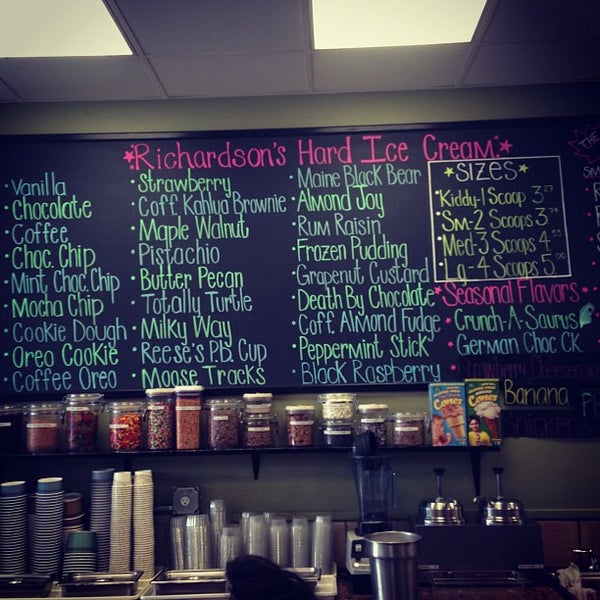 Richardson's Hard Ice Cream
Vanilla
Chocolate
Coffee
Choc. Chip
Mint Choc. Chip
Mocha Chip
Cookie Dough
Oreo Cookie
Coffee Oreo
Strawberry
Coff. Kahlua Brownie
Maple Walnut
Pistachio
Butter Pecan
Totally Turtle
Milky Way
Reese's P.B. Cup
Moose Tracks
Maine Black Bear
Almond Joy
Rum Raisin
Frozen Pudding
Grapenut Custard
Death By Chocolate
Coff. Almond Fudge
Peppermint Stick
Black Raspberry
SIZES
Kiddy-1 Scoop 3.27
Sm-2 Scoops 3.74
Med-3 Scoops
Lg-4 Scoops 5.00
Seasonal Flavors
Crunch-A-Saurus
German Choc Ck
Strawberry Cheesecake
Banana
Snickers
THE
Cones
Cones